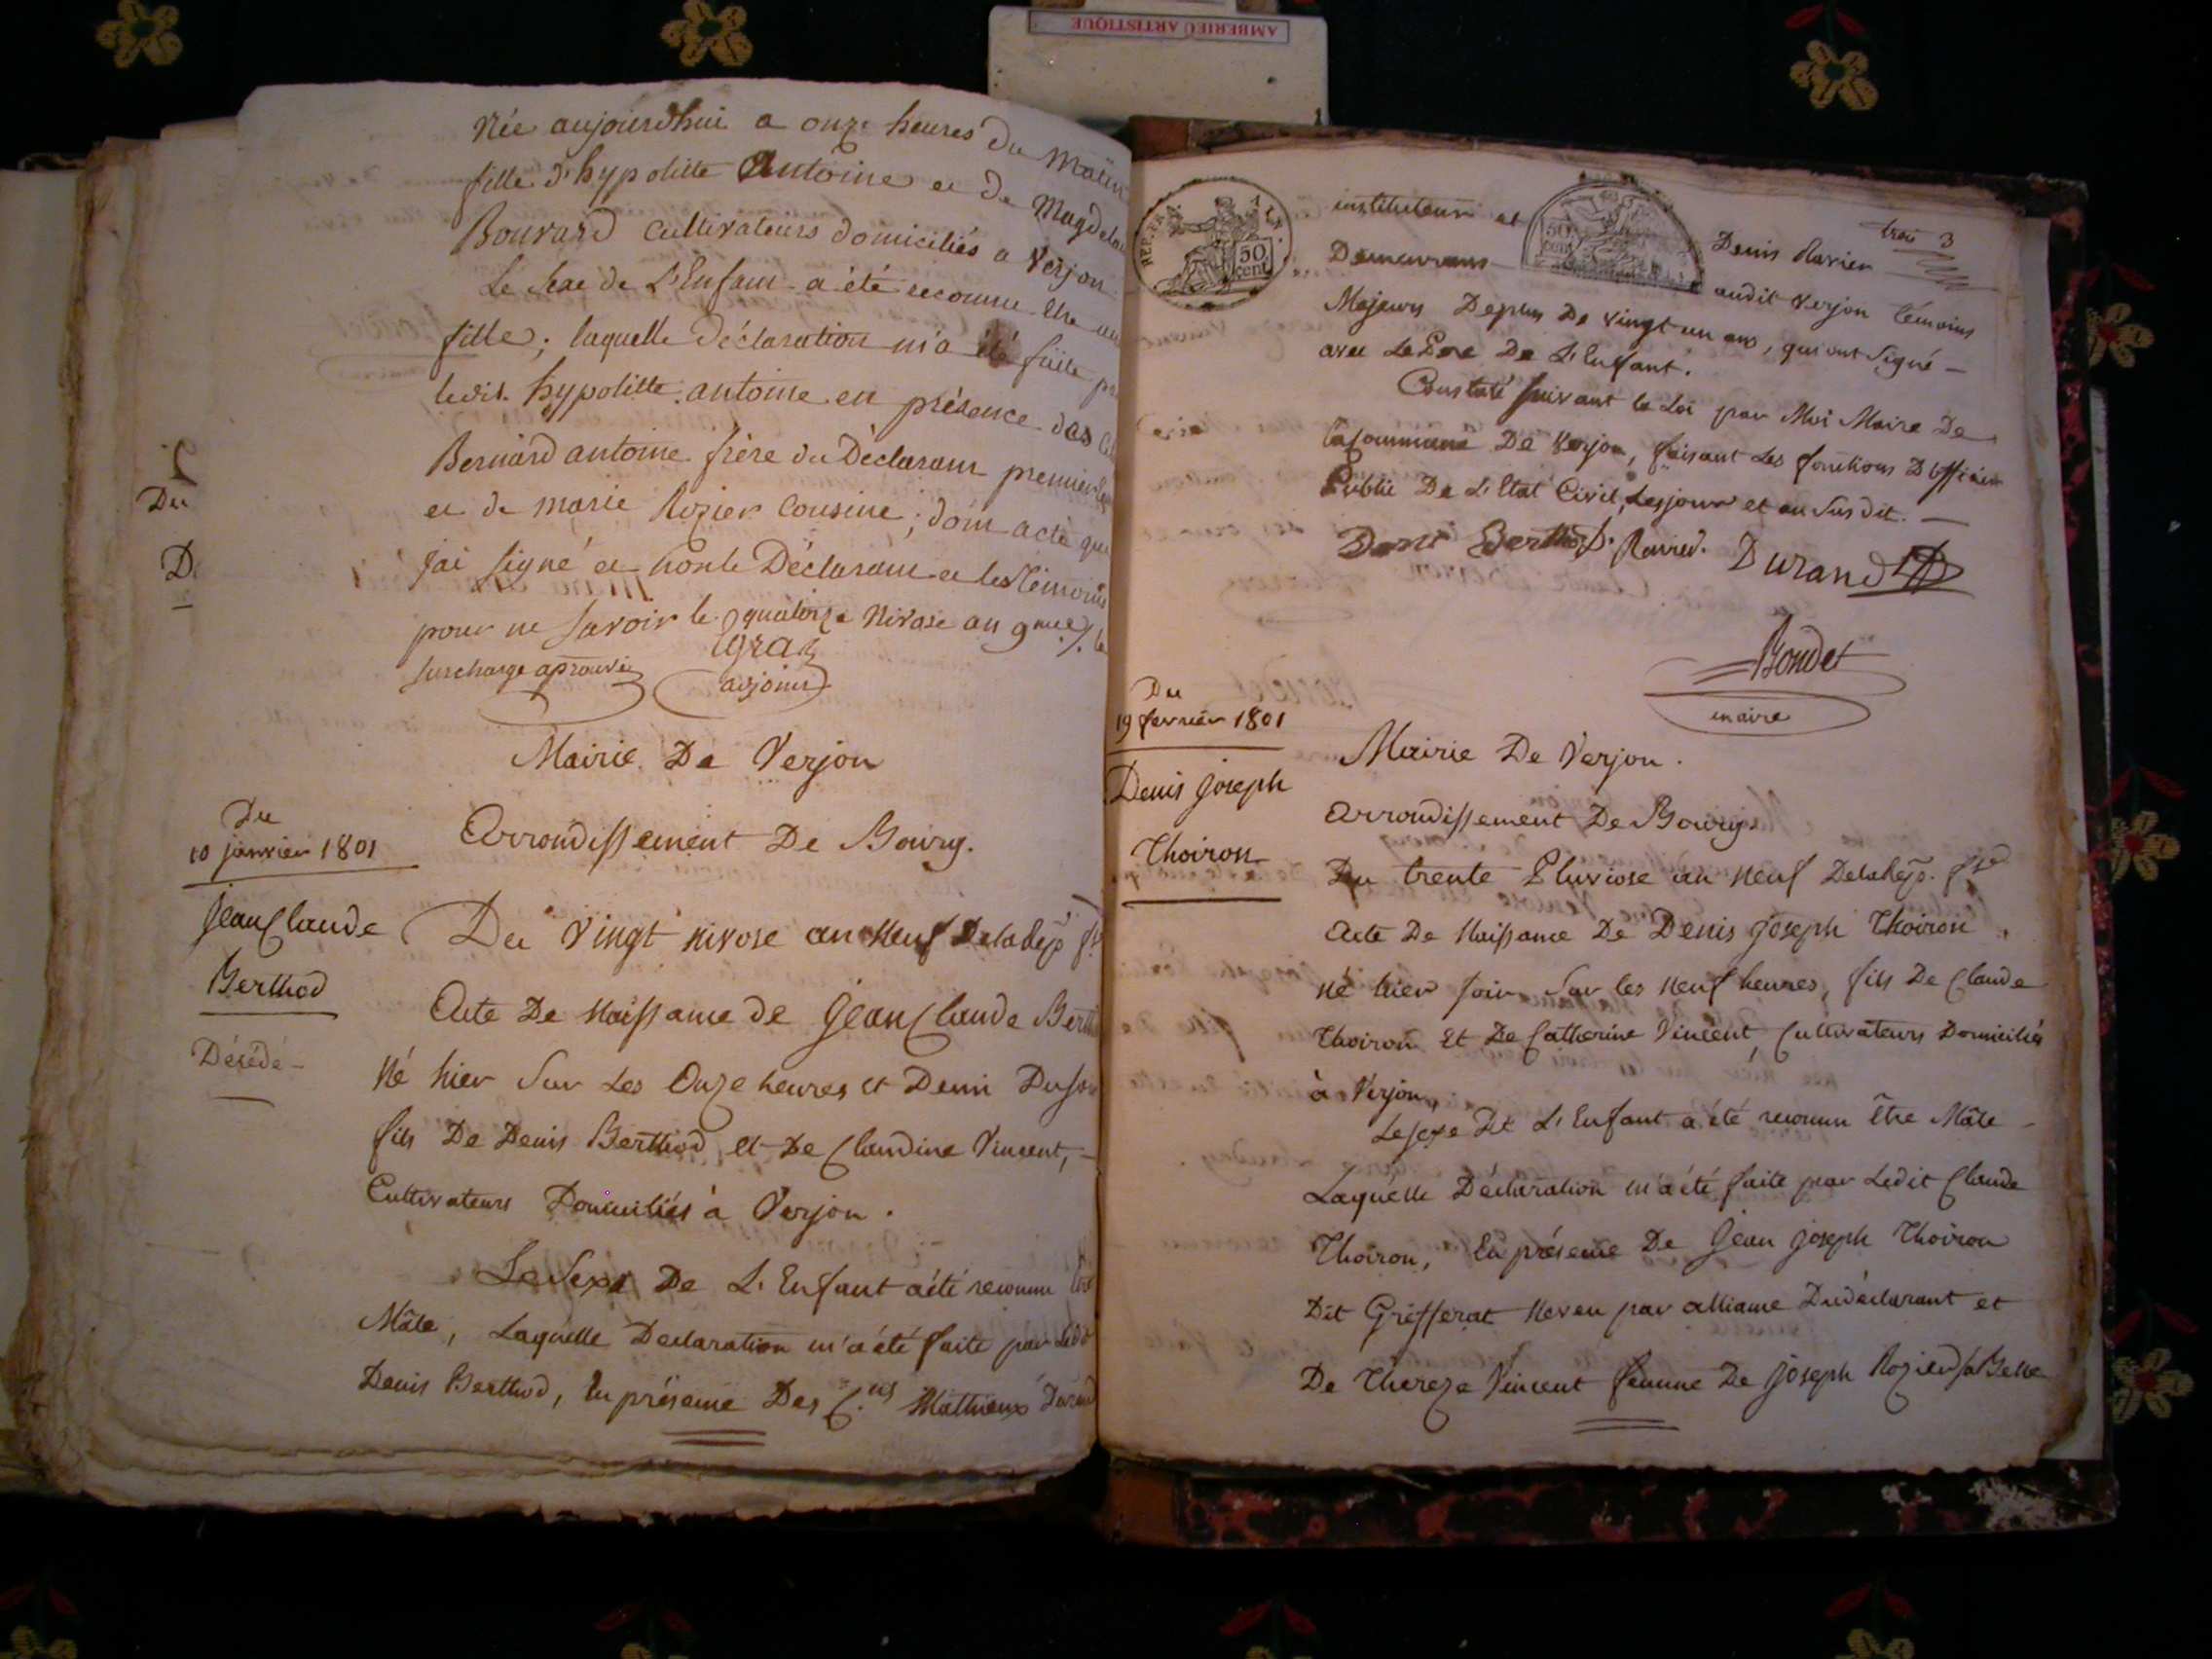 AMBERIEU ARTISTIQUE
Née aujourdhui a onze heures du matin
fille d'hypolitte Antoine et de Magdela
Bouvard cultivateurs domiciliés a Verjon
Le sexe de L'Enfant a été reconnu Etre un
fille; laquelle déclaration m'a été faite p
ledit hypolitte antoine en présence des
Bernard antoine frère du Déclarant premier
et de marie Rozier Cousine; dont acte que
j'ai signé et non le Déclarant et les témoins
pour ne savoir le quatorze Nivase an 9
surcharge aprouvée
adjoint
Du
D
Mairie De Verjon
Arrondissement De Bourg.
Du
10 janvier 1801
Jean Claude
Berthod
Décédé
Du Vingt nivose an Neuf De la Rep
Acte De Naissance de Jean Claude Bert
Né hier Sur Les Onze heures et Demi Du so
fils De Denis Berthod et De Claudine Vincent,
Cultivateurs Domiciliés à Verjon.
Le Sexe De L'Enfant a été reconnu
Mâle, Laquelle Declaration m'a été faite par Ledi
Denis Berthod, En présence Des C.ens Mathieux Durand
REP. FRA.
50 cent
50 cent
instituteur et Denis Ravier
trois 3
Demeurans audit Verjon témoins
Majeurs De plus De vingt un ans, qui ont Signé
avec Le Pere De L'Enfant.
Constaté suivant la Loi par Moi Maire De
la Commune De Verjon, faisant Les fonctions D'officier
Public De L'Etat Civil, Les jour et an Susdit.
Berthod. Ravier. Durand
Bondet
maire
Du
19 fevrier 1801
Denis Joseph
Thoiron
Mairie De Verjon.
Arrondissement De Bourg
Du trente Pluviose an Neuf De la Rep.
Acte De Naissance De Denis Joseph Thoiron
né hier soir Sur les Neuf heures, fils De Claude
Thoiron Et De Catherine Vincent, Cultivateurs Domiciliés
à Verjon,
Le Sexe De L'Enfant a été reconnu Être Mâle
Laquelle Déclaration m'a été faite par Ledit Claude
Thoiron, En présence De Jean Joseph Thoiron
Dit Grifferat Neveu par alliance Du déclarant et
De Thereze Vincent femme De Joseph Rozier sa Belle